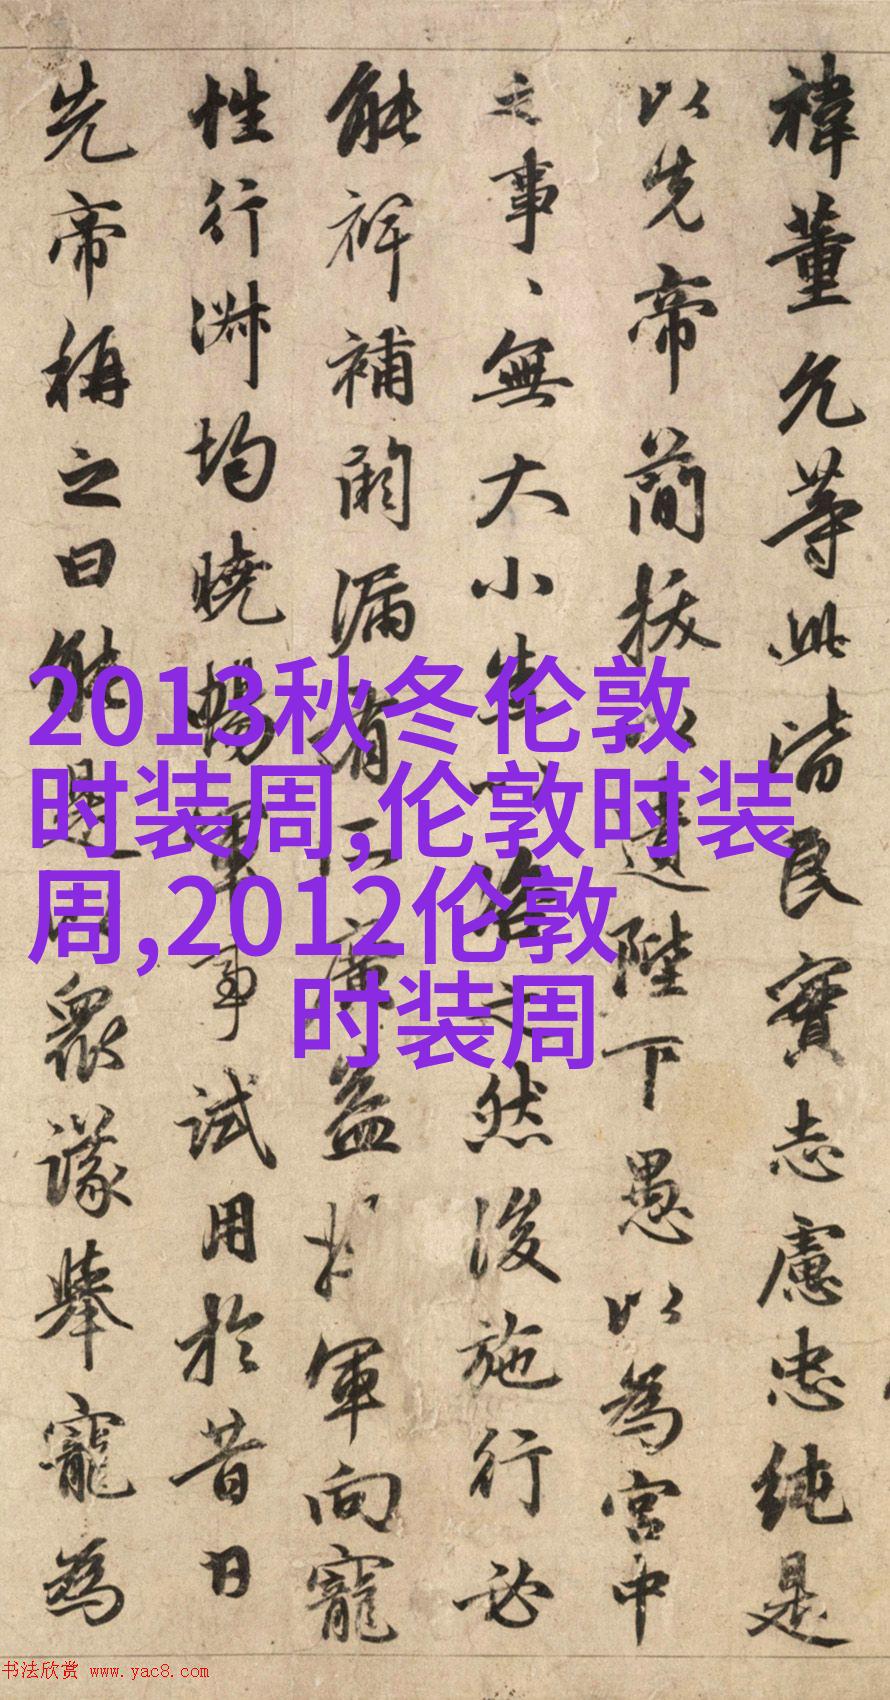 禕董允等此皆良實志慮忠純是
以先帝簡拔以遺陛下愚以為宮中
之事、無大小以咨之然後施行必
能裨補闕漏有所廣益將軍向寵
性行淑均曉暢軍事試用於昔日
先帝稱之曰能是以眾議舉寵為
2013秋冬伦敦
时装周,伦敦时装
周,2012伦敦
时装周
书法欣赏 www.yac8.com